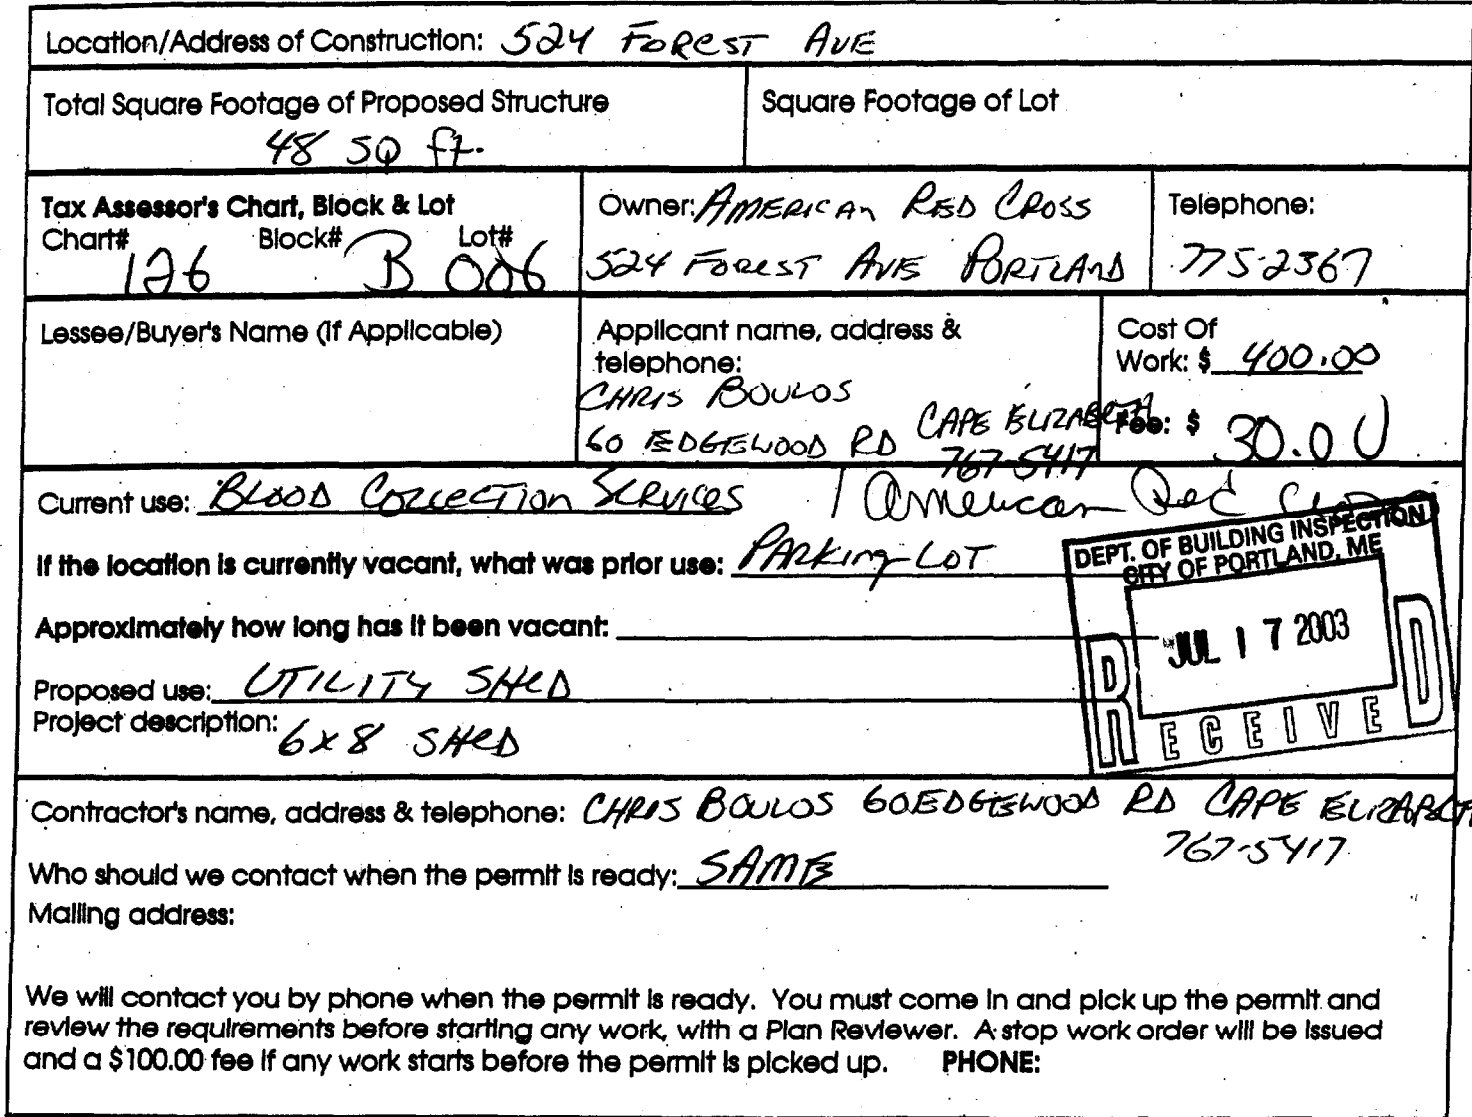 Location/Address of Construction: 524 FOREST AVE
Total Square Footage of Proposed Structure
48 SQ ft.
Square Footage of Lot
Tax Assessor's Chart, Block & Lot
Chart# Block# Lot#
126 B 006
Owner: AMERICAN RED CROSS
524 FOREST AVE PORTLAND
Telephone:
775-2367
Lessee/Buyer's Name (If Applicable)
Applicant name, address &
telephone:
CHRIS BOULOS
60 EDGEWOOD RD CAPE ELIZABETH
767-5417
Cost Of
Work: $ 400.00
Fee: $ 30.00
Current use: BLOOD COLLECTION SERVICES / American Red Cross
If the location is currently vacant, what was prior use: PARKING LOT
Approximately how long has it been vacant:
Proposed use: UTILITY SHED
Project description: 6x8 SHED
DEPT. OF BUILDING INSPECTION
CITY OF PORTLAND, ME
JUL 17 2003
RECEIVED
Contractor's name, address & telephone: CHRIS BOULOS 60 EDGEWOOD RD CAPE ELIZABETH
767-5417
Who should we contact when the permit is ready: SAME
Mailing address:
We will contact you by phone when the permit is ready. You must come in and pick up the permit and
review the requirements before starting any work, with a Plan Reviewer. A stop work order will be issued
and a $100.00 fee if any work starts before the permit is picked up. PHONE: